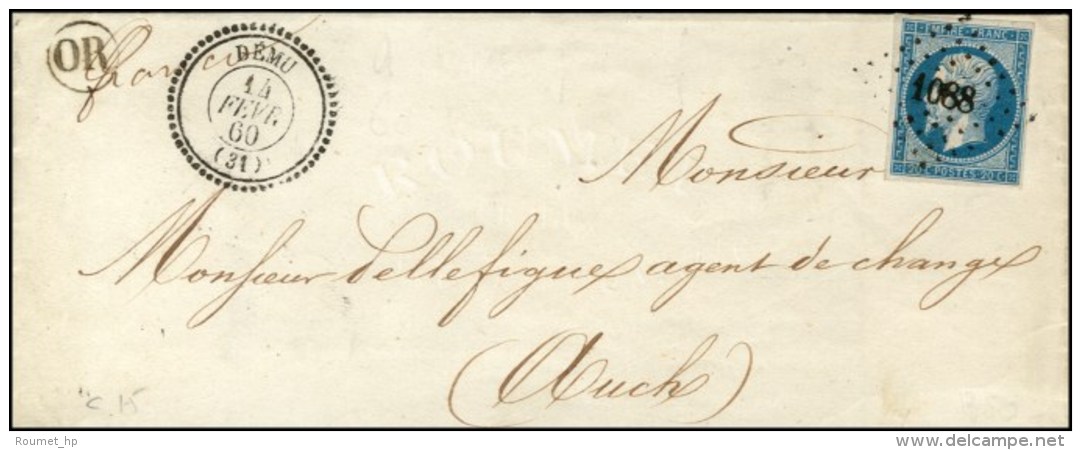 OR
franco
DÉMU
14
FEVR.
60
(31)
EMPIRE FRANC.
1088
20 C POSTES 20 C
Monsieur
Monsieur Dellefigue agent de change
(Auch)
C. 15
Roumet_hp
www.delcampe.net